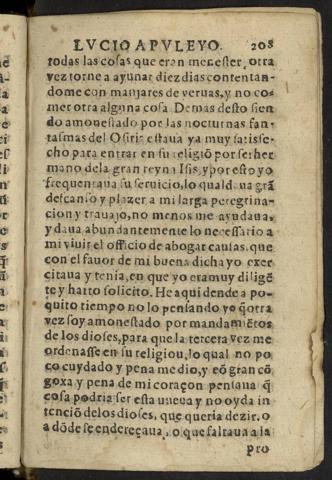 LVCIO APVLEYO. 208
todas las cosas que eran menester, otra
vez torne a ayunar diez dias contentan-
dome con manjares de yeruas, y no co-
mer otra alguna cosa Demas desto sien
do amonestado por las nocturnas fan-
tasmas del Osiris estaua ya muy satisse-
cho para entrar en su religiõ por ser her
mano dela gran reyna Isis, y por esto yo
frequentaua su seruicio, lo qual daua grã
descanso y plazer a mi larga peregrina-
cion y trauajo, no menos me ayudaua,
y daua abundantemente lo necessario a
mi viuir el officio de abogar causas, que
con el fauor de mi buena dicha yo exer
citaua y tenia, en que yo era muy diligẽ
te y harto solicito. He aqui dende a po-
quito tiempo no lo pensando yo q̃ otra
vez soy amonestado por mandamiẽtos
de los dioses, para que la tercera vez me
ordenasse en su religion, lo qual no po
co cuydado y pena me dio, y cõ gran cõ
goxa y pena de mi coraçon pensaua q̃
cosa podria ser esta nueua y no oyda in
tenciõ delos dioses, que queria dezir, o
a dõde se endereçaua, o que faltaua a la
pro